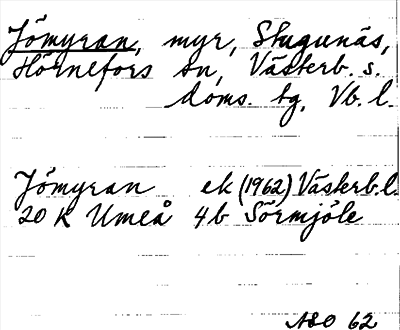 Jömyran, myr, Stugunäs,
Hörnefors sn, Västerb. s.
doms. tg, Vb. l.
Jömyran ek (1962) Västerb. l.
20 K Umeå 4b Sörmjöle
ASO 62